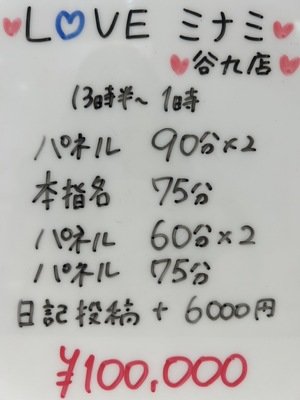 LOVE ミナミ
谷九店
13時半~1時
パネル 90分×2
本指名 75分
パネル 60分×2
パネル 75分
日記投稿 + 6000円
¥100,000